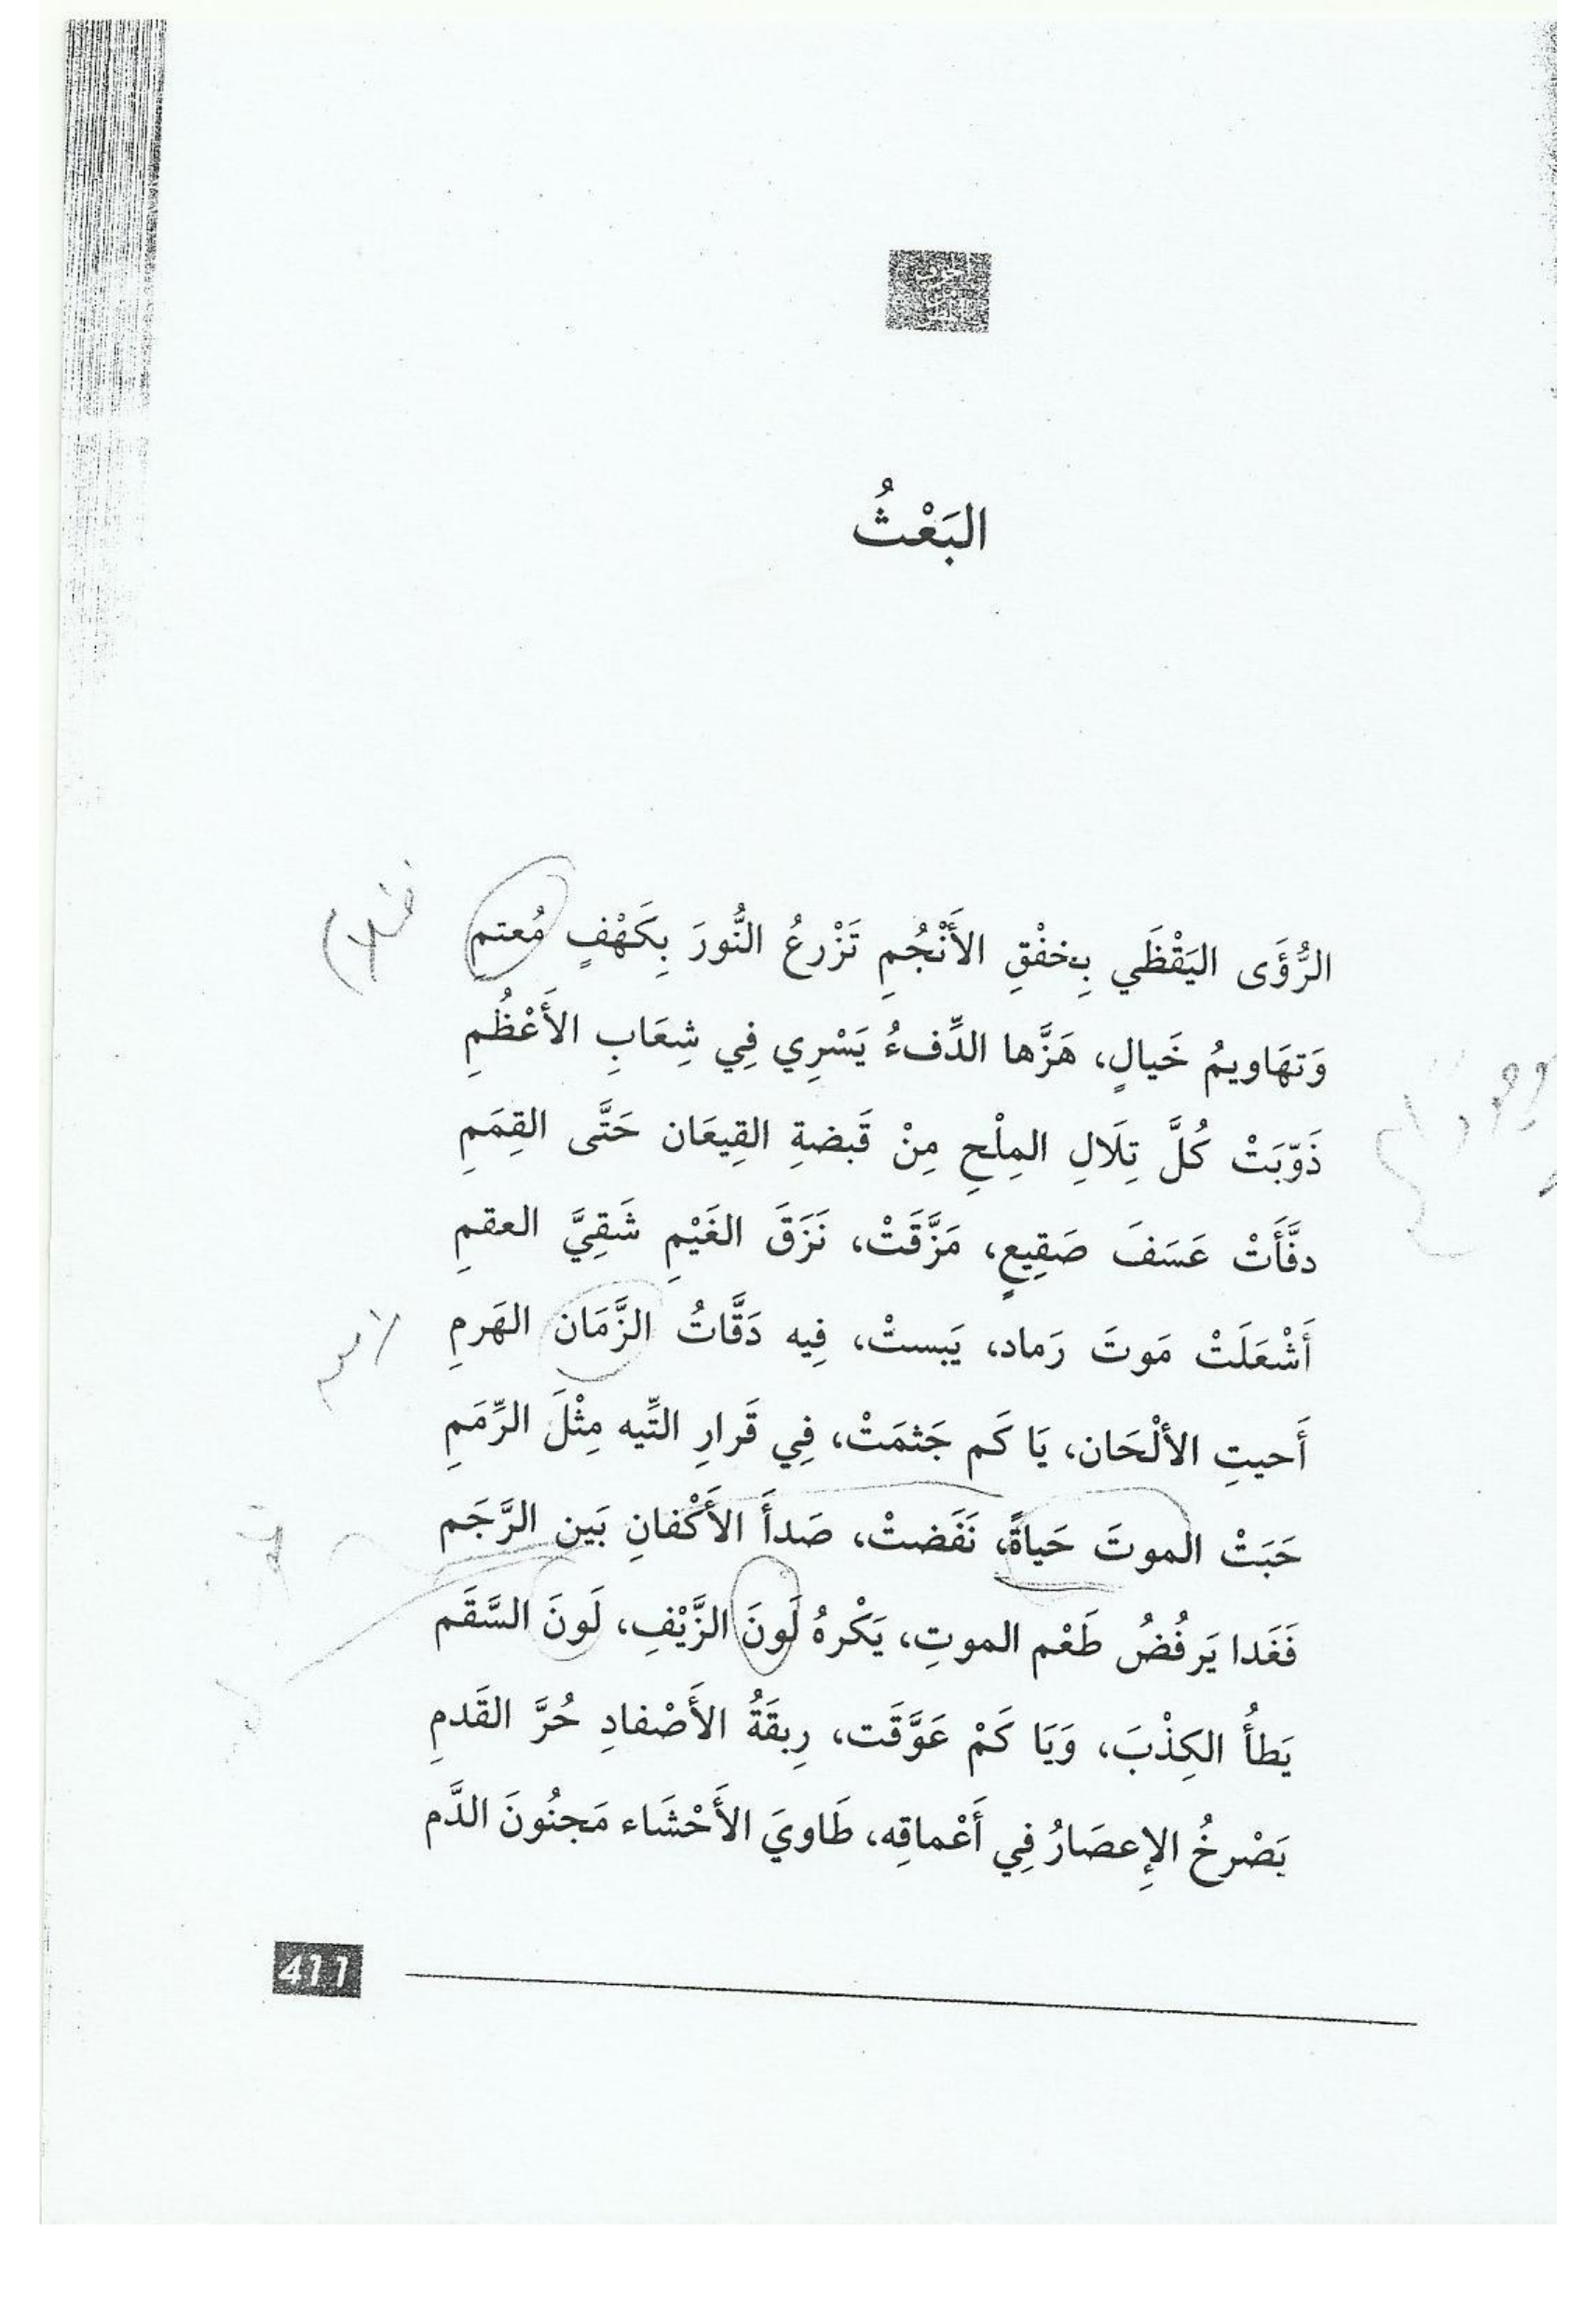 البَعْثُ
الرُّؤَى اليَقْظَي بِخفْقِ الأَنْجُمِ تَزْرعُ النُّورَ بِكَهْفٍ مُعتمِ
وَتهَاويمُ خَيالٍ، هَزَّها الدِّفءُ يَسْرِي فِي شِعَابِ الأَعْظُمِ
ذَوّبَتْ كُلَّ تِلَالِ المِلْحِ مِنْ قَبضةِ القِيعَان حَتَّى القِمَمِ
دفَّأَتْ عَسَفَ صَقِيعٍ، مَزَّقَتْ، نَزَقَ الغَيْمِ شَقِيَّ العقمِ
أَشْعَلَتْ مَوتَ رَماد، يَبستْ، فِيه دَقَّاتُ الزَّمَان الهَرمِ
أَحيتِ الألْحَان، يَا كَم جَثمَتْ، فِي قَرارِ التِّيه مِثْلَ الرِّمَمِ
حَبَتْ الموتَ حَياةً، نَفَضتْ، صَدأَ الأَكْفانِ بَين الرَّجَم
فَغَدا يَرفُضُ طَعْم الموتِ، يَكْرهُ لَونَ الزَّيْفِ، لَونَ السَّقَم
يَطأُ الكِذْبَ، وَيَا كَمْ عَوَّقَت، رِبقَةُ الأَصْفادِ حُرَّ القَدمِ
يَصْرخُ الإِعصَارُ فِي أَعْماقِه، طَاويَ الأَحْشَاء مَجنُونَ الدَّم
411